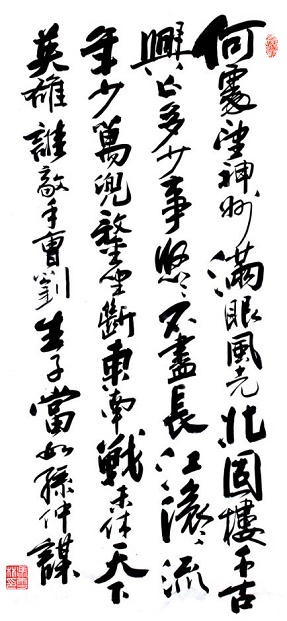 何處望神州滿眼風光北固樓千古
興亡多少事悠々不盡長江滾々流
年少萬兜鍪坐斷東南戰未休天下
英雄誰敵手曹劉生子當如孫仲謀